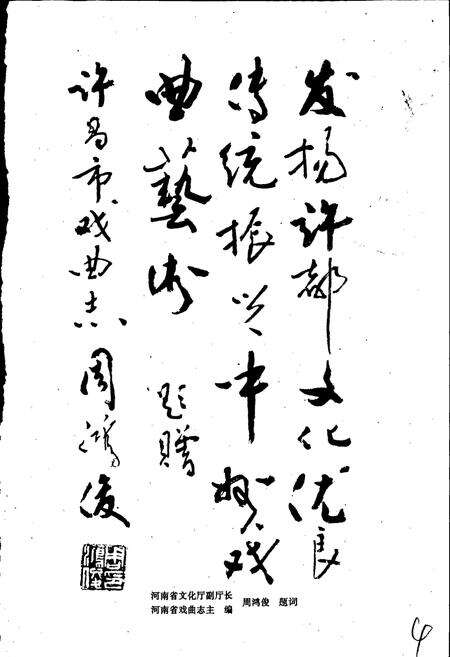 发扬许都文化优良
传统振兴中州戏
曲藝術 题赠
许昌市戏曲志 周鸿俊
河南省文化厅副厅长
河南省戏曲志主 编 周鸿俊 题词
4